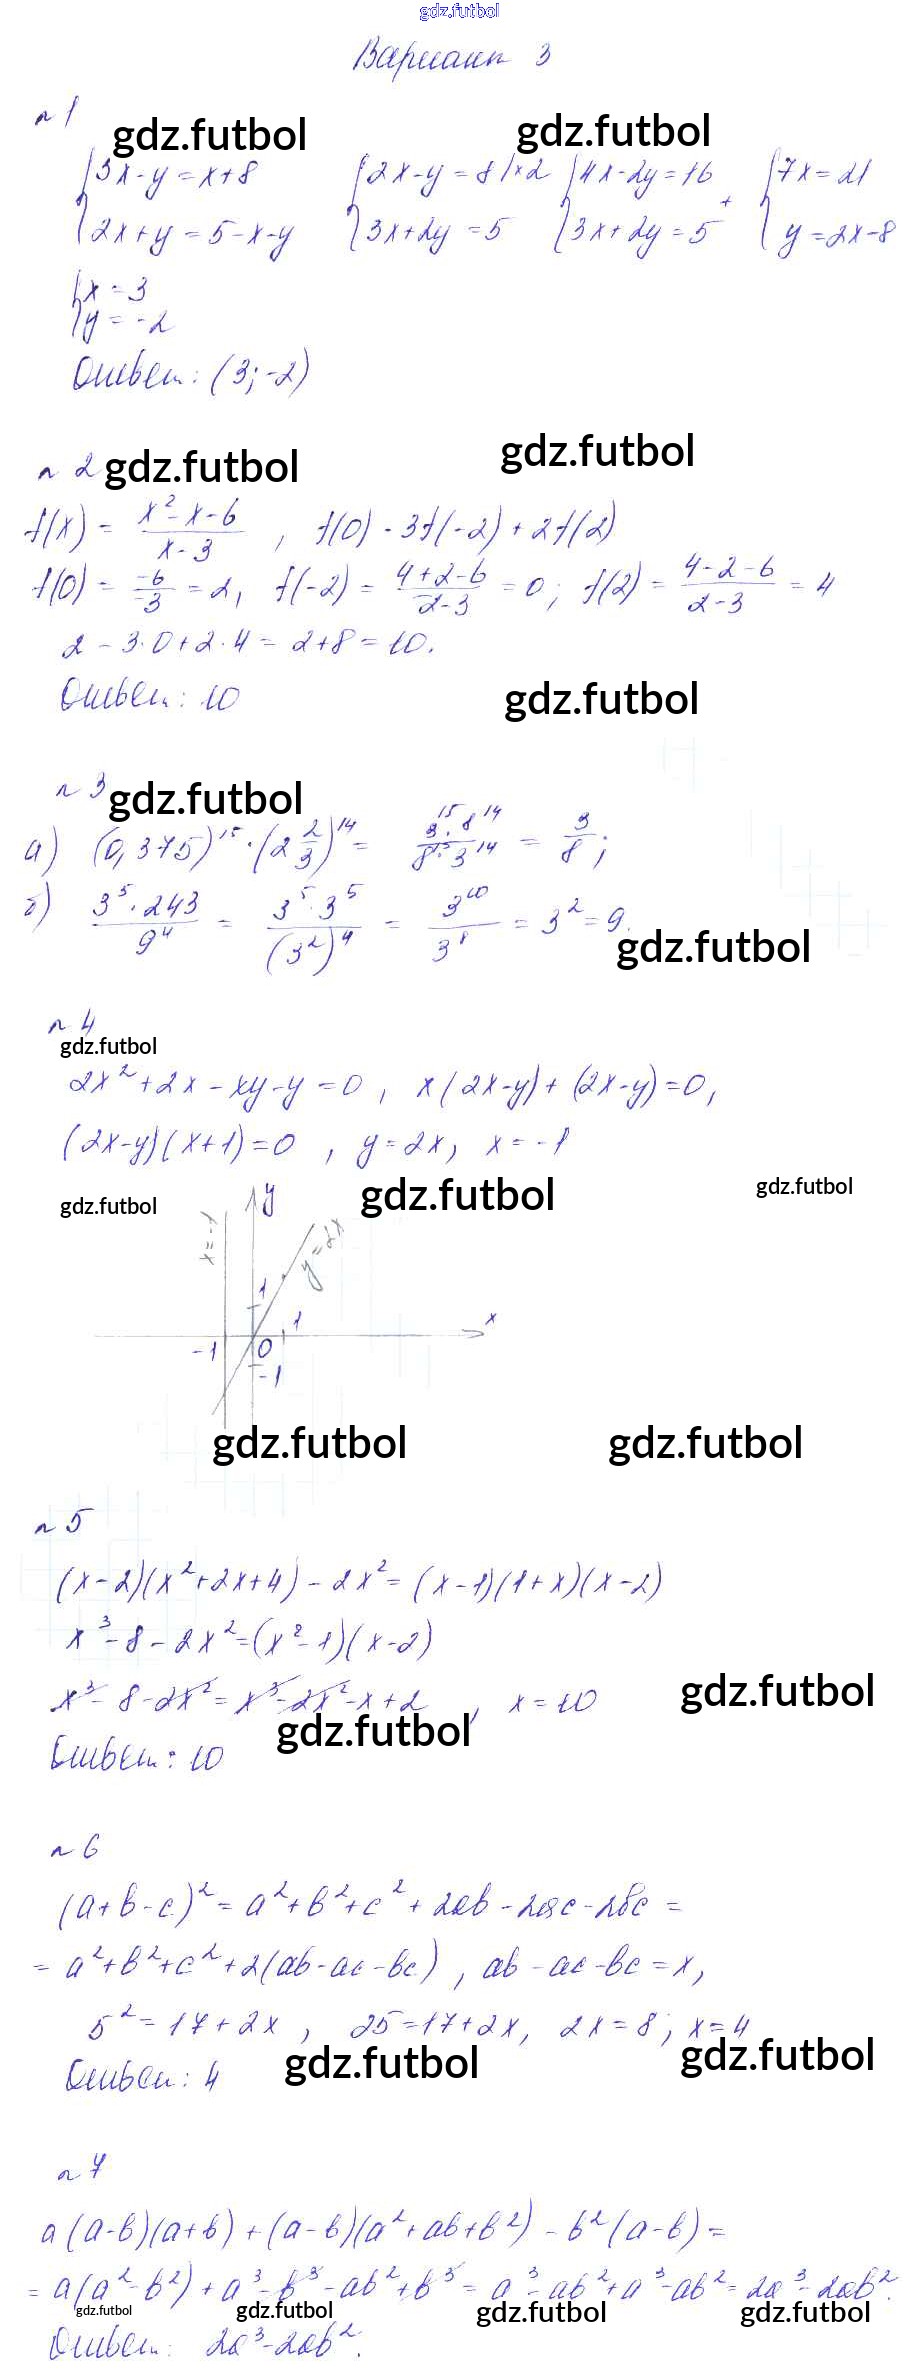 gdz.futbol
Вариант 3
n 1
gdz.futbol gdz.futbol
{3x-y=x+8 {2x-y=8 |×2 {4x-2y=16 + {7x=21
{2x+y=5-x-y {3x+2y=5 {3x+2y=5 {y=2x-8
{x=3
{y=-2
Ответ: (3; -2)
n 2 gdz.futbol gdz.futbol
f(x) = (x²-x-6)/(x-3), f(0) - 3f(-2) + 2f(2)
f(0) = -6/-3 = 2, f(-2) = (4+2-6)/(-2-3) = 0; f(2) = (4-2-6)/(2-3) = 4
2 - 3·0 + 2·4 = 2+8 = 10.
Ответ: 10 gdz.futbol
n 3 gdz.futbol
а) (0,375)¹⁵·(2 2/3)¹⁴ = (3¹⁵·8¹⁴)/(8¹⁵·3¹⁴) = 3/8;
б) (3⁵·243)/9⁴ = (3⁵·3⁵)/(3²)⁴ = 3¹⁰/3⁸ = 3² = 9.
gdz.futbol
n 4
gdz.futbol
2x²+2x-xy-y=0, x(2x-y)+(2x-y)=0,
(2x-y)(x+1)=0, y=2x, x=-1
gdz.futbol gdz.futbol gdz.futbol
y
x=-1 y=2x
1
1 x
-1 0
-1
gdz.futbol gdz.futbol
n 5
(x-2)(x²+2x+4)-2x²=(x-1)(1+x)(x-2)
x³-8-2x²=(x²-1)(x-2)
x³-8-2x²=x³-2x²-x+2, x=10
gdz.futbol gdz.futbol
Ответ: 10
n 6
(a+b-c)²=a²+b²+c²+2ab-2ac-2bc=
=a²+b²+c²+2(ab-ac-bc), ab-ac-bc=x,
5²=17+2x, 25=17+2x, 2x=8; x=4
Ответ: 4 gdz.futbol gdz.futbol
n 7
a(a-b)(a+b)+(a-b)(a²+ab+b²)-b²(a-b)=
=a(a²-b²)+a³-b³-ab²+b³=a³-ab²+a³-ab²=2a³-2ab².
gdz.futbol gdz.futbol gdz.futbol gdz.futbol
Ответ: 2a³-2ab².